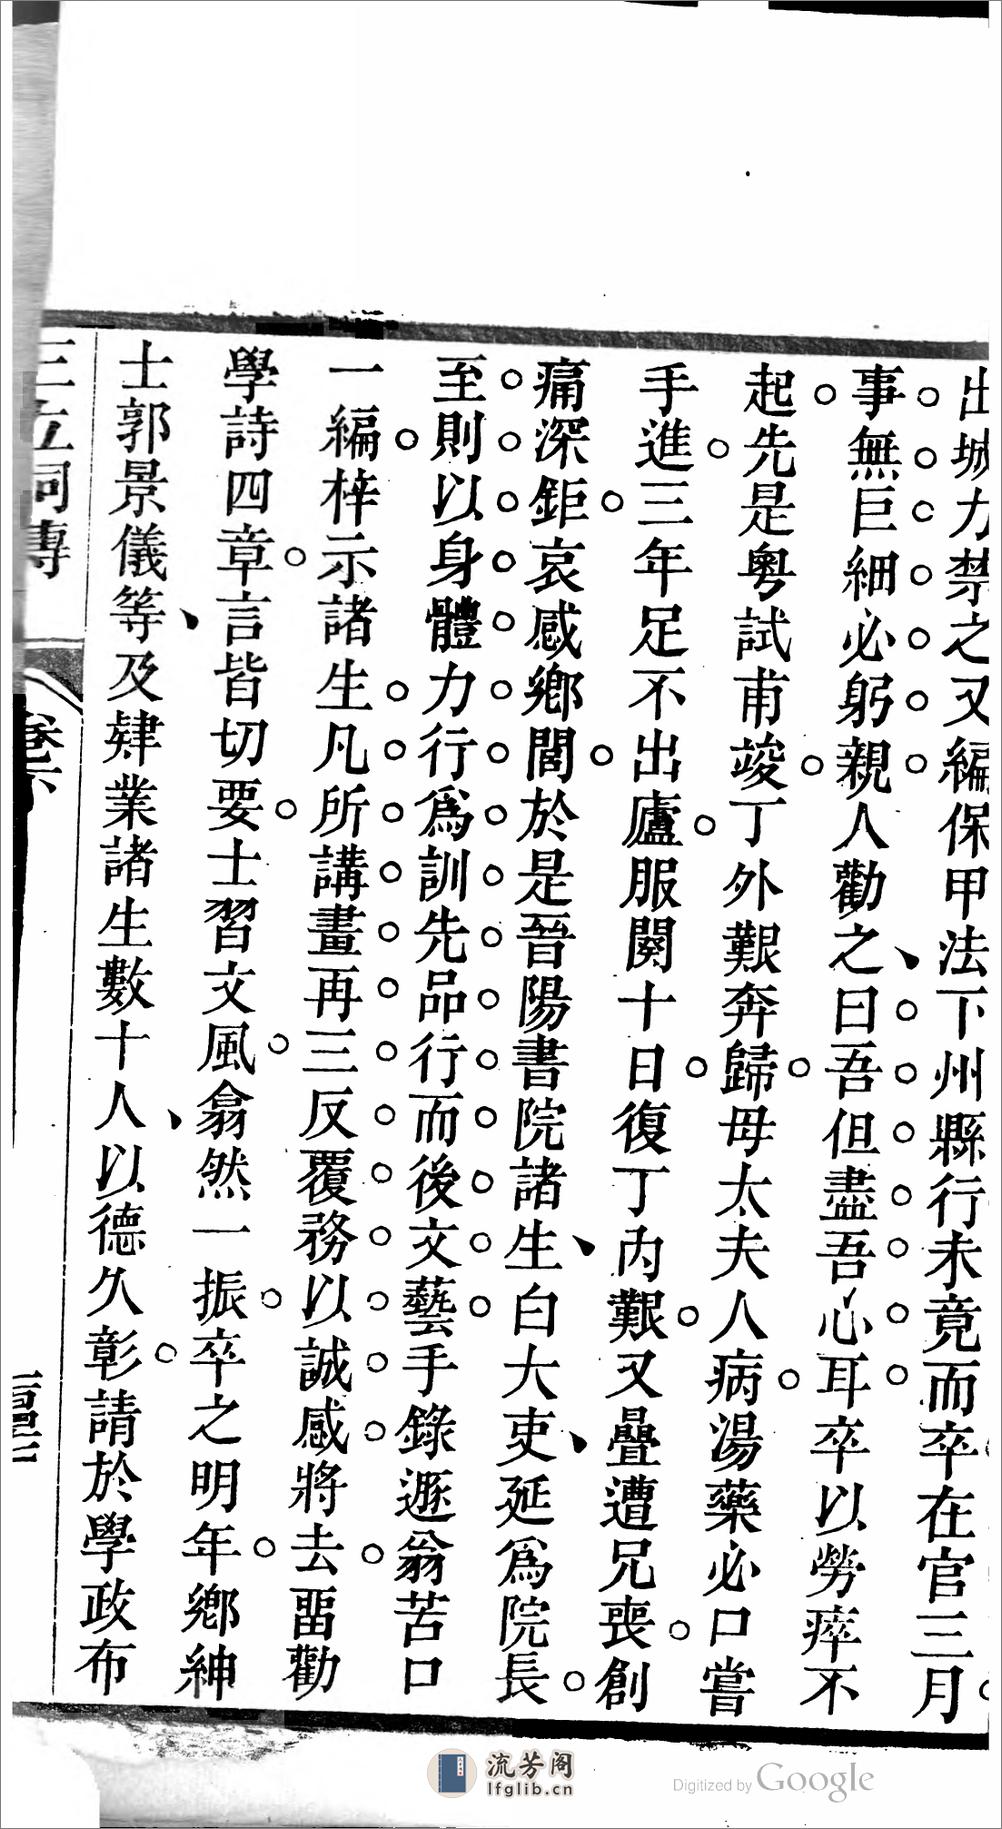 出城力禁之又編保甲法下州縣行未竟而卒在官三月
事無巨細必躬親人勸之曰吾但盡吾心耳卒以勞瘁不
起先是粵試甫竣丁外艱奔歸母太夫人病湯藥必口嘗
手進三年足不出廬服闋十日復丁內艱又疊遭兄喪創
痛深鉅哀感鄉閭於是晉陽書院諸生白大吏延爲院長
至則以身體力行爲訓先品行而後文藝手錄遯翁苦口
一編梓示諸生凡所講畫再三反覆務以誠感將去畱勸
學詩四章言皆切要士習文風翕然一振卒之明年鄉紳
士郭景儀等及肄業諸生數十人以德久彰請於學政布
三立祠傳 卷六
流芳阁
lfglib.cn
Digitized by Google